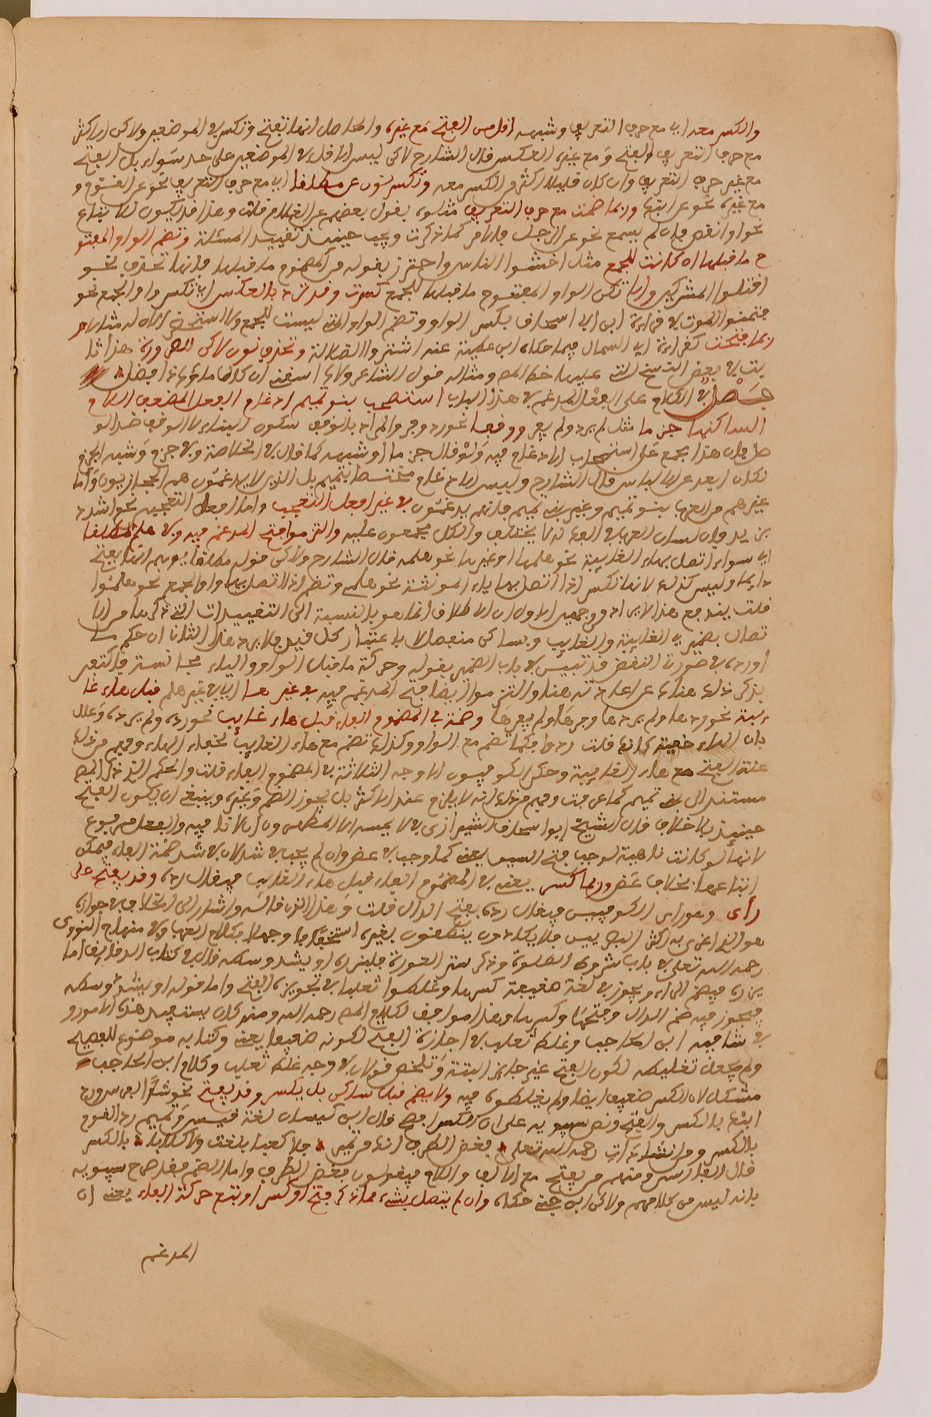 والكسر معه اي مع حرف التعريف وشبهه اقل من الفتح مع غيره والحاصل انها تفتح وتكسر في الموضعين ولاكن الاكثر
مع حرف التعريف الفتح ومع غيره العكس قال الشارح لاكن ليس الاقل في الموضعين على حد سواء بل الفتح
مع غير حرف التعريف وان كان قليلا اكثر من الكسر معه وتكسر نون عن مطلقا اي مع حرف التعريف نحو عن القوم و
مع غيره نحو عن ابنك وربما ضمت مع حرف التعريف مثاله يقول بعضهم عن الغلام قلت وهذا قد يكون لاتباع
نحو اوانقص فان لم يسمع نحو عن الرجل فالامر كما ذكرت ويجب حينئذ تقييد المسئلة وتضم الواو المفتو
ح ما قبلها ان كانت للجمع مثل اخشوا الناس واحترز بقوله من المضموم ما قبلها فانها تحذف نحو
اقتلوا المشركين وان لم تكن الواو المفتوح ما قبلها للجمع كسرت وقد ترد بالعكس اي تكسر واو الجمع نحو
فتمنوا الموت في قراءة ابن ابي اسحاق بكسر الواو وتضم الواو التي ليست للجمع ولا استحضر الان له مثالا و
ربما فتحت كقراءة ابي السمال فيما حكاه ابن عطية عنه اشتروا الضلالة وتحذف نون لاكن للضرورة هذا ثا
بت في بعض النسخ التي عليها خط المص ومثاله قول الشاعر ولاك اسقني ان كان ماؤك ذا فضل
فصل في الكلام على الفعل المدغم في هذا الباب استصحب بنو تميم ادغام الفعل المضعف اللام
الساكنها جزما مثل لم يرد ولم يفر ووقفا نحو رد وفر والمراد بالوقف سكون البناء لا الوقف ضد الو
صل فان هذا يجمع على استصحاب الادغام فيه ولو قال جزما او شبهه كما قال في الخلاصة وفي جزم وشبه الجزم
لكان ابعد عن الالباس قال الشارح وليس الادغام مختصا بتميم بل الذين لا يدغمون هم الحجازيون واما
غيرهم من العرب بنو تميم وغير بني تميم فانهم يدغمون في غير افعل التعجب واما افعل التعجب نحو اشدد
بزيد فان لسان العرب في الفك لم يختلف والكل مجمعون عليه والتزموا فتح المدغم فيه في هلم مطلقا
اي سواء اتصل بهاء الغائبة نحو هلمها او غيرها نحو هلمه قال الشارح ولاكن قوله مطلقا يوهم انها تفتح
دايما وليس كذلك لانها تكسر اذا اتصل بها ياء المونثة نحو هلمي وتضم اذا اتصل بها واو الجمع نحو هلموا
قلت يندفع هذا الايراد من وجهين الاول ان الاطلاق انما هو بالنسبة الى التقييدات التي ذكرها من الا
تصال بضمير الغائبة والغائب وبساكن منفصل لا باعتبار كل قيد فلا يرد هذا الثاني ان حكم ما
اورده في صورة النقض قد تبين في باب الضمير بقوله وحركة ما قبل الواو والياء مجانسة فاكتفى
بذكر ذلك هناك عن اعادته هنا والتزموا ايضا فتح المدغم فيه في غير هلم قبل هاء غا
يبة نحو ردها ولم يردها وفرها ولم يفرها وضمه في المضموم الفاء قبل هاء غائب نحو رده ولم يرده وعلل
بان الهاء خفية قلت ردوا كما تضم مع الواو وكذلك تضم مع هاء الغائب لخفاء الهاء وفهم من ذلك
علة الفتح مع هاء الغائبة وحكى الكوفيون الاوجه الثلاثة في المضموم الفاء قلت والحكم الذي ذكر المص
مستند الى بني تميم كما عرفت وفهم من ذلك انه لا يلزم عند الاكثر بل يجوز الضم وغيره وينبغي ان يكون الفتح
حينئذ بلا خلاف قال الشيخ ابو اسحاق الشيرازي في لا يمسه الا المطهرون ان لا نافية والفعل مرفوع
لانها لو كانت ناهية لوجب فتح السين يعني كما وجب في عض وان لم يجب في شد لان في شد ضمة الفاء فيمكن
اتباعها بخلاف عض وربما كسر يعني في المضموم الفاء قبل هاء الغائب فيقال رده وقد يفتح على
رأى وهو راى الكوفيين فيقال رده بفتح الدال قلت
رحمه الله تعلى في باب شروط الصلوة وذكر ستر العورة فليزره او يشده وسطه قال في كتاب الدقايق اما
يزره فيضم الراء ويجوز في لغة ضعيفة كسرها وغلطوا ثعلبا في تجويزه الفتح واما قوله او يشد وسطه
فيجوز فيه ضم الدال وفتحها وكسرها وهذا موافق لكلام المص رحمه الله ومنه كان يستفيد هذه الامور و
في شافية ابن الحاجب وغلط ثعلب في اجازة الفتح لكونه ضعيفا يعني وكتابه موضوع للفصيح
ولم يجعل تغليطه لكون الفتح غير جايز البتة وتلخص قولان في وجه غلط ثعلب وكلام ابن الحاجب
مشكل لان الكسر ضعيف ايضا ولم يغلطوه فيه ولا يضم قبل ساكن بل يكسر وقد يفتح نحو شد الحبل سرورد
ابنك بالكسر والفتح ونص سيبويه على ان الكسر افصح قال ابن كيسان لغة قيس وتميم رد القوم
بالكسر ومن انشاداته رحمه الله تعلى فغض الطرف انك من نمير فلا كعبا بلغت ولا كلابا بالكسر
قال الفارسي ومنهم من يفتح مع الالف واللام فيقولون فغض الطرف واما الضم فقد صرح سيبويه
بانه ليس من كلامهم ولاكن ابن جني حكاه وان لم يتصل بشيء مما ذكر فتح او كسر او تبع حركة الفاء يعني ان
المدغم